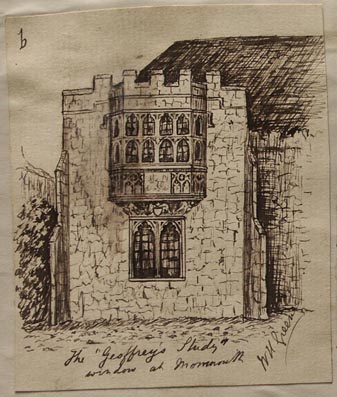 b
The "Geoffrey's Study"
window at Monmouth